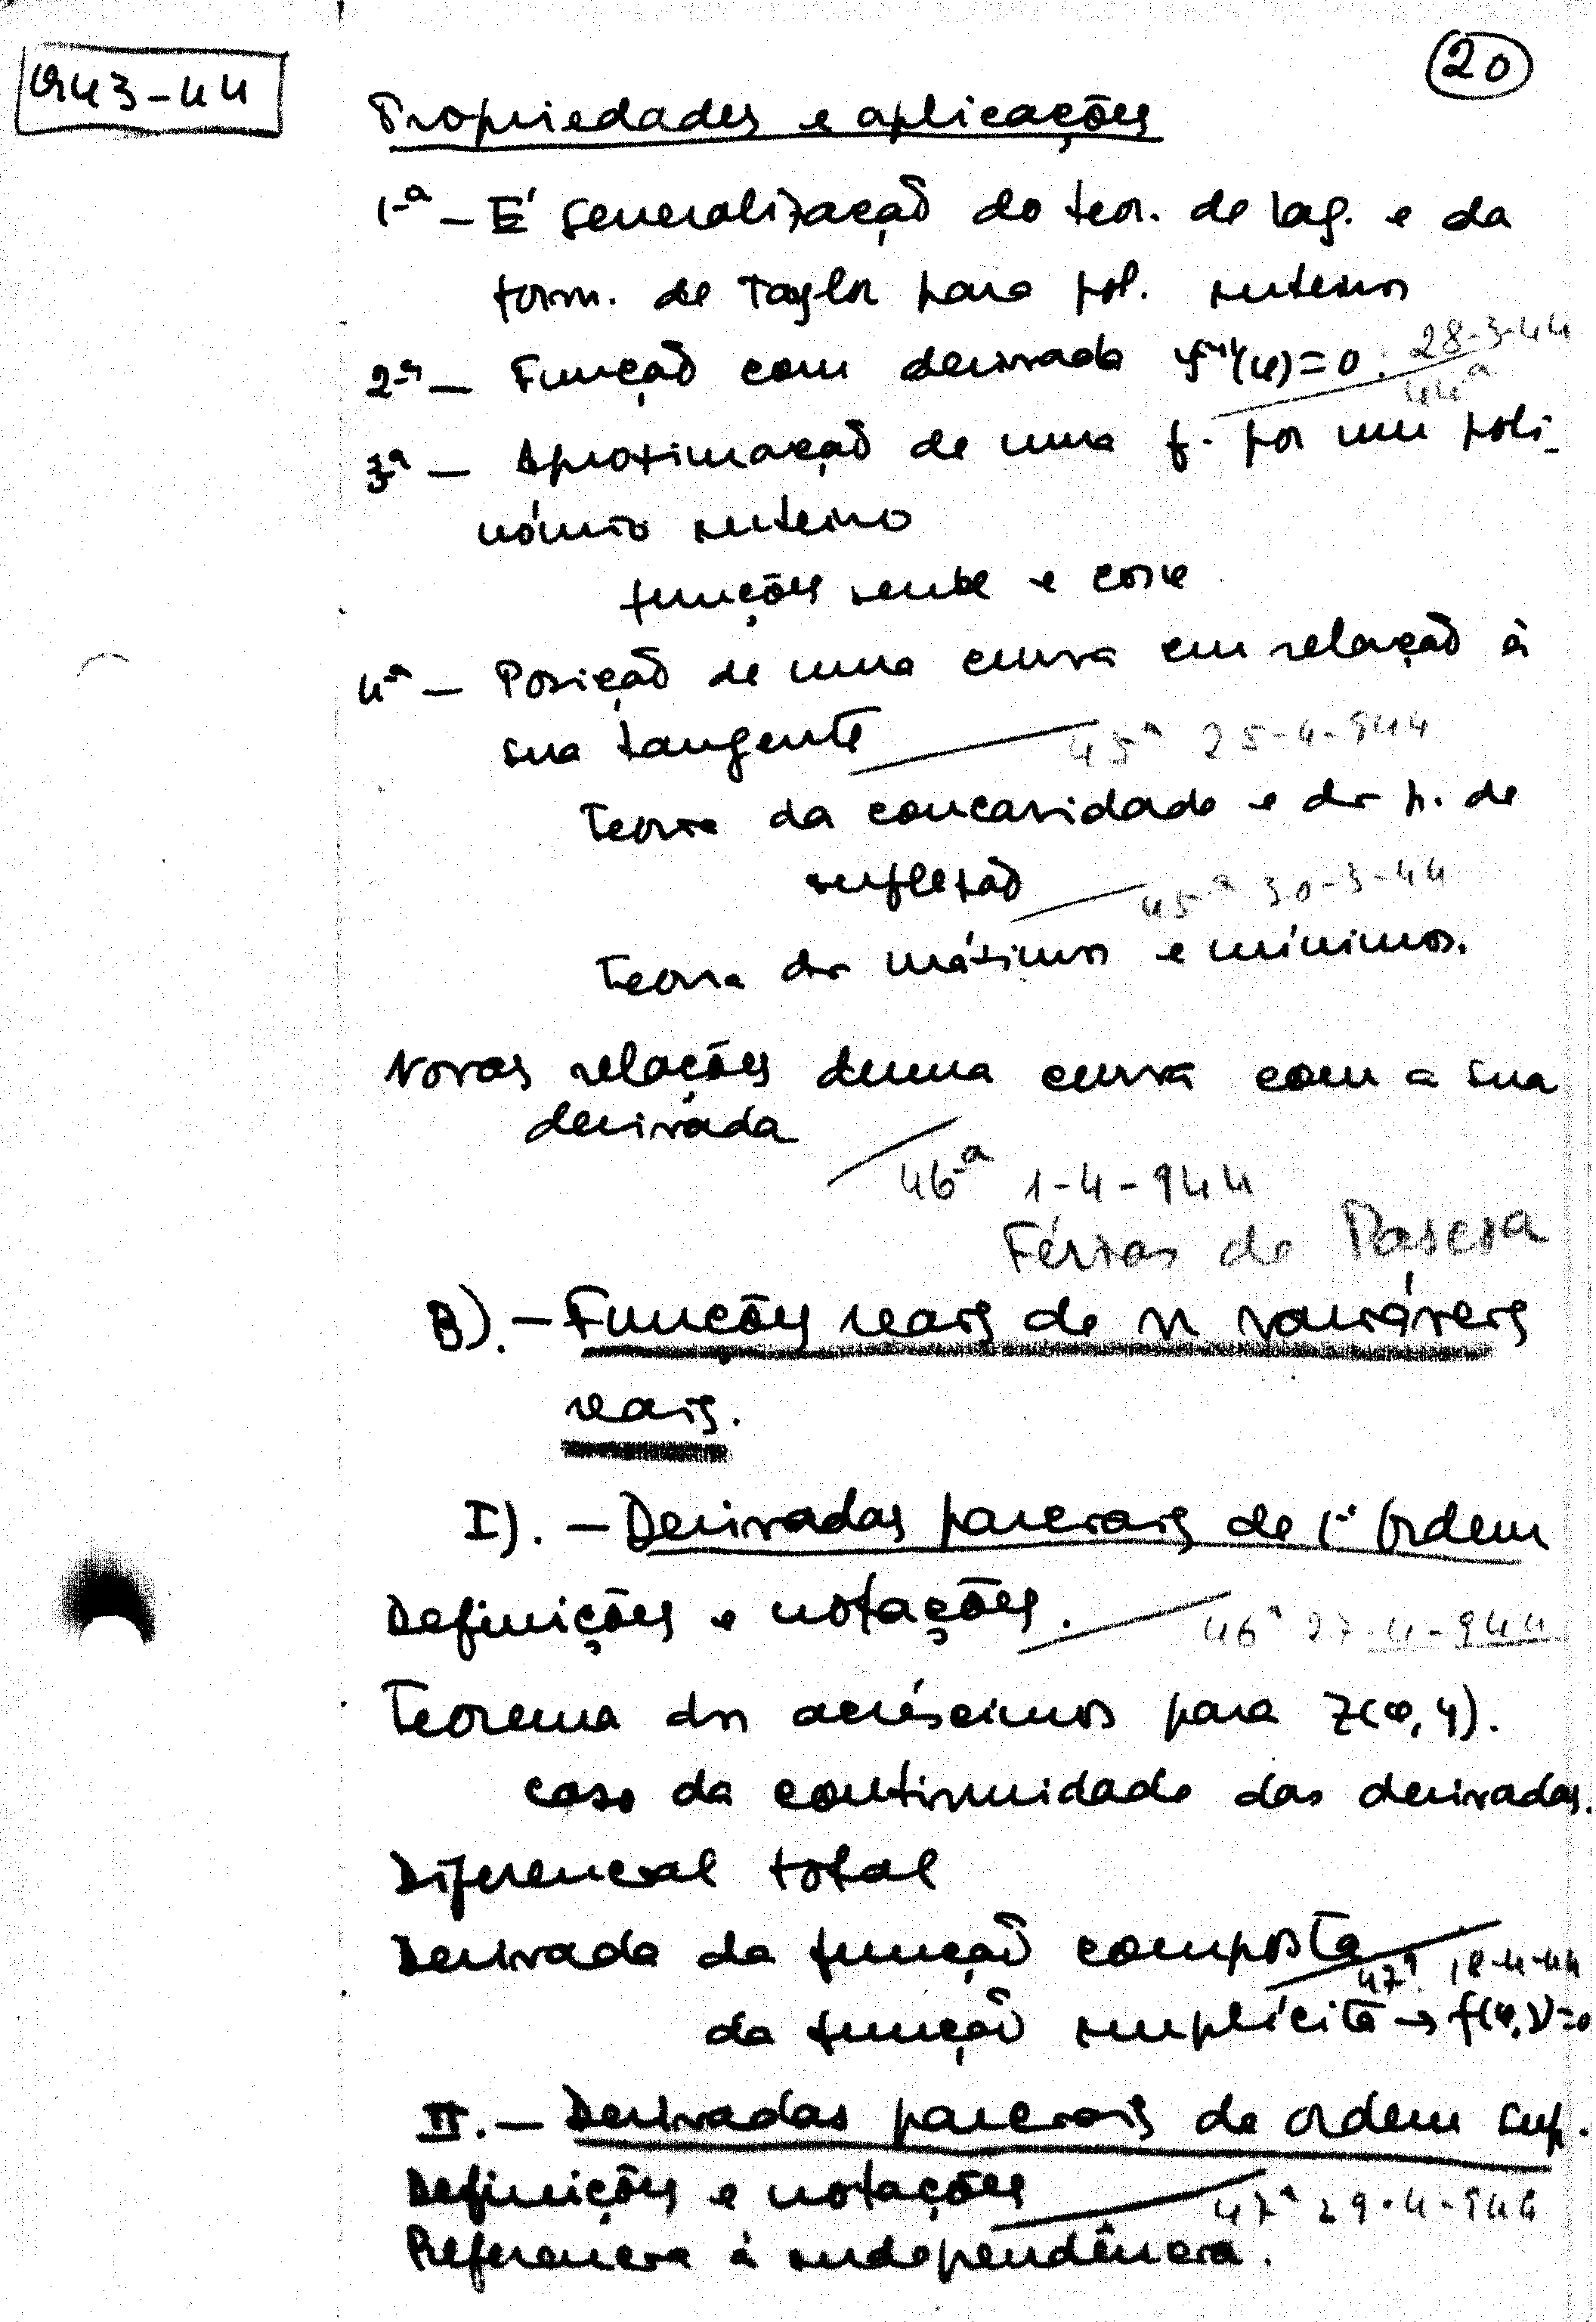 1943-44
20
Propriedades e aplicações
1ª - É generalização do teor. de Lag. e da
form. de Taylor para pol. inteiros
2ª - Função com derivada = 0. 28-3-44
44ª
3ª - Aproximação de uma f. por um poli-
nómio inteiro
funções senx e cosx
4ª - Posição de uma curva em relação à
sua tangente 45ª 25-4-944
Teoria da concavidade e dos p. de
inflexão 45ª 30-3-44
Teoria dos máximos e mínimos.
Novas relações duma curva com a sua
derivada
46ª 1-4-944
Férias de Pascoa
B). - Funções reais de n variáveis
reais.
I). - Derivadas parciais de 1ª ordem
Definições e notações. 46ª 27-4-944
Teorema dos acréscimos para z(x,y).
caso da continuidade das derivadas.
Diferencial total
Derivada da função composta 47ª 18-4-44
da função implícita → f(x,y)=0
II. - Derivadas parciais de ordem sup.
Definições e notações 47ª 29-4-944
Referencia à independência.